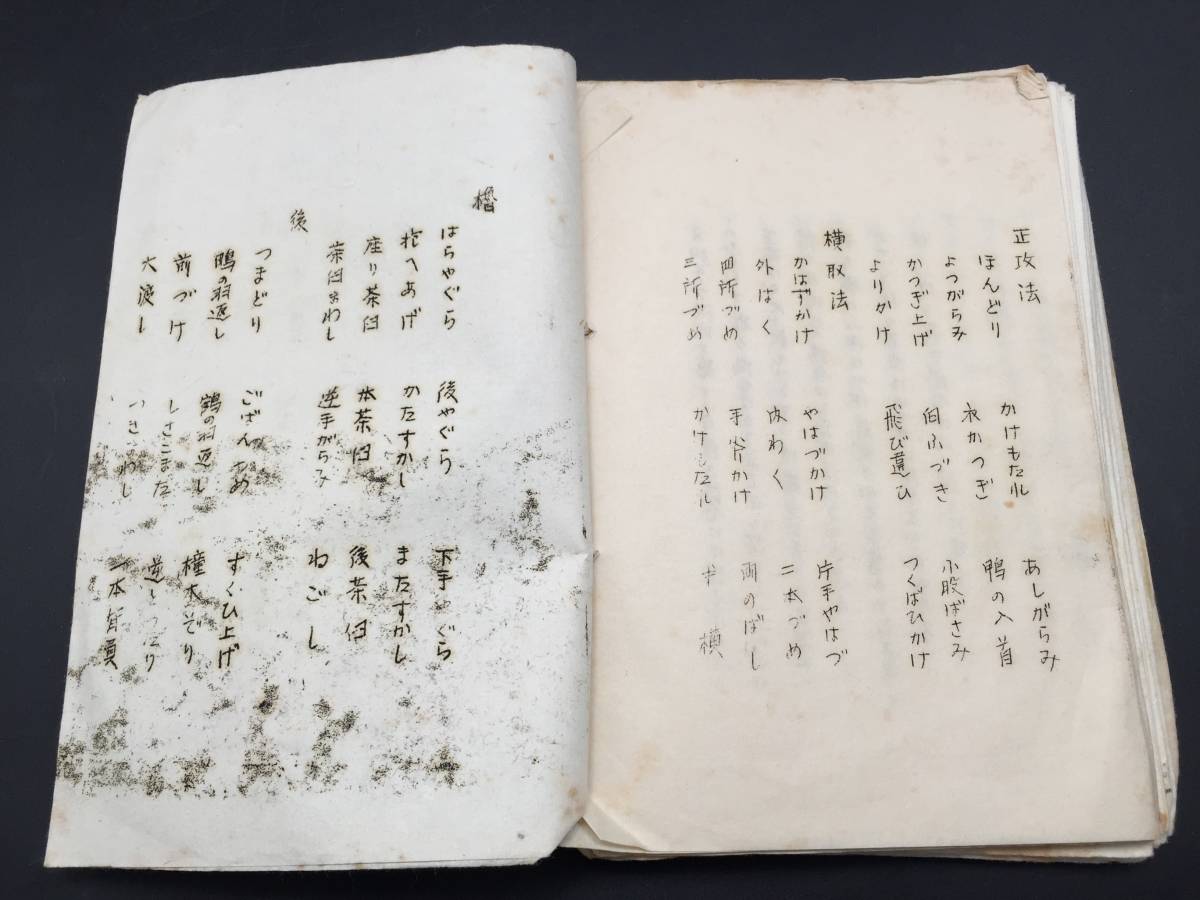 正攻法
ほんどり かけもたれ あしがらみ
よつがらみ 衣かつぎ 鴨の入首
かつぎ上げ 向ふづき 小股ばさみ
よりかけ 飛び違ひ つくばひかけ
横取法
かはずかけ やはづかけ 片手やはづ
外はく 内わく 二本づめ
四所づめ 手斧かけ 両のばし
三所づめ かけもたれ 横
櫓
はらやぐら 後やぐら 下手やぐら
抱へあげ かたすかし またすかし
座り茶臼 本茶臼 後茶臼
茶臼まわし 逆手がらみ ねごし
後
つまどり ごばんぜめ すくひ上げ
鴫の羽返し 鶴の羽返し 橦木ぞり
前づけ しさこまた
大渡し 一本背負